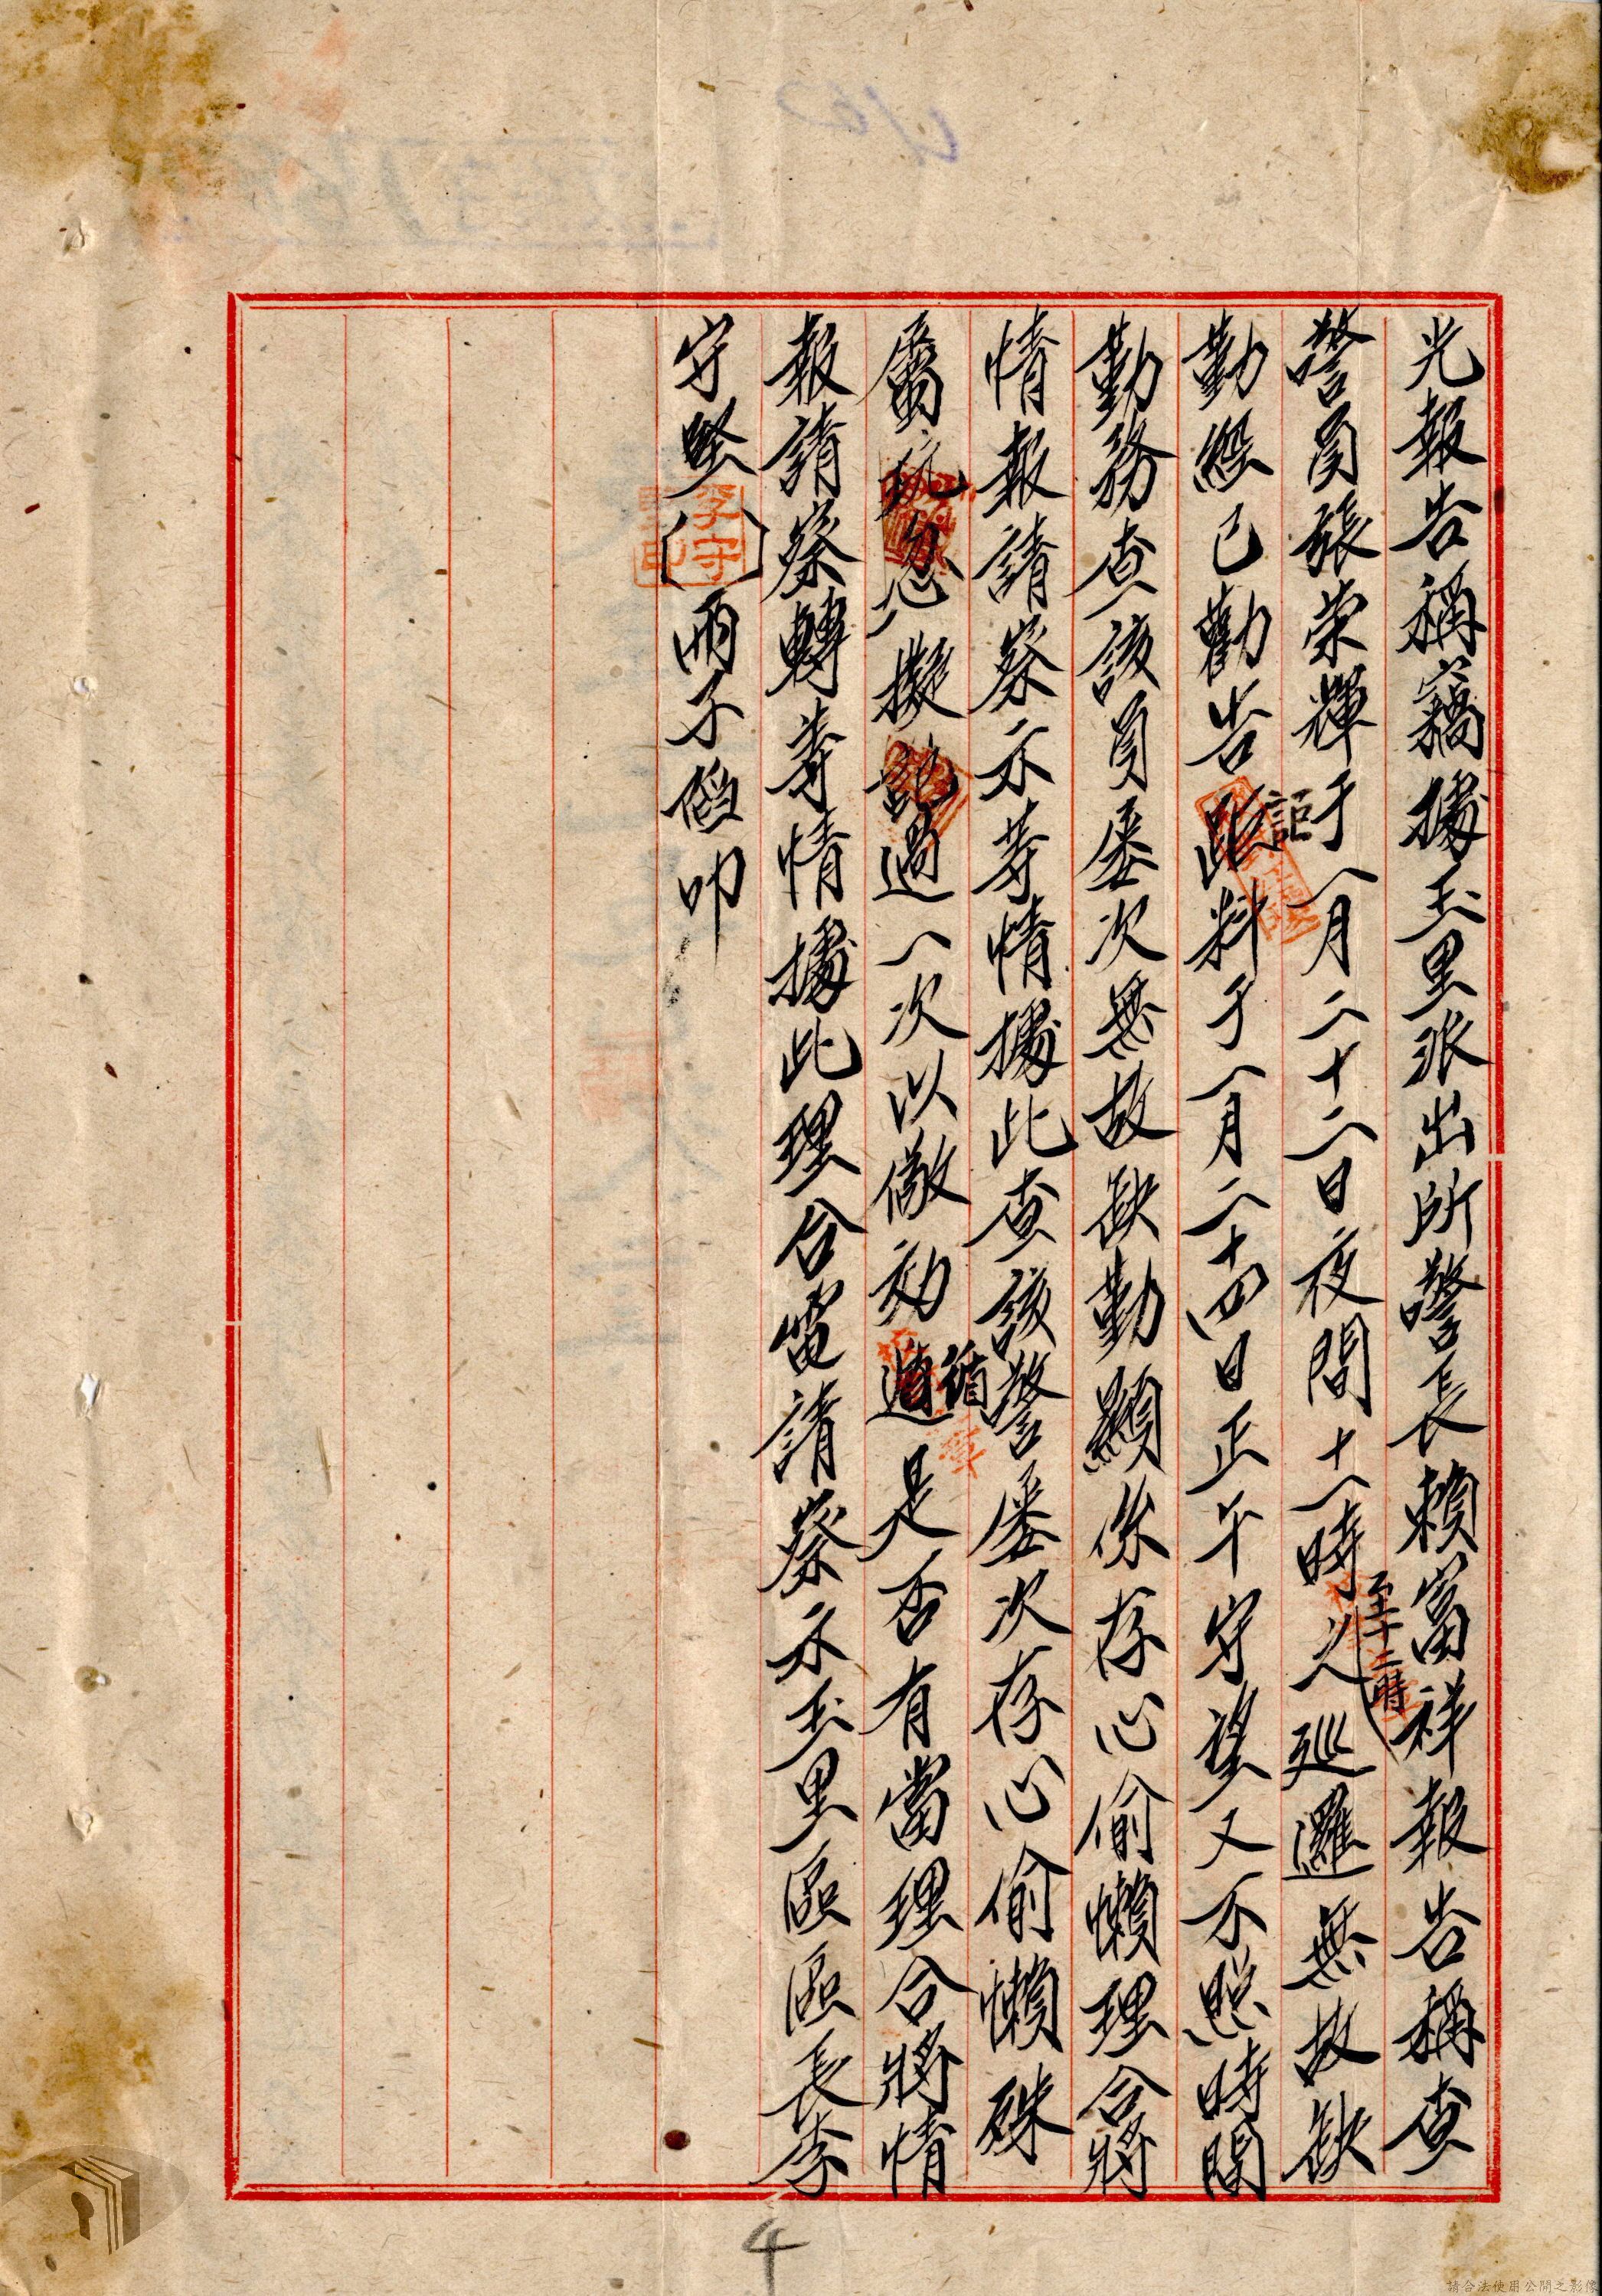 光報告稱竊據玉里派出所警長賴富祥報告稱查
警員張榮輝于一月二十二日夜間十一時至十二時之巡邏無故缺
勤經已勸告詎料于一月二十四日正午守望又不照時間
勤務查該員屡次無故缺勤顯係存心偷懶理合將
情報請察示等情據此查該警屡次存心偷懶殊
屬玩忽擬記過一次以儆效循是否有當理合將情
報請察轉等情據此理合電請察示玉里區區長李
守堅 丙子 叩
李守
印
4
請合法使用公開之影像